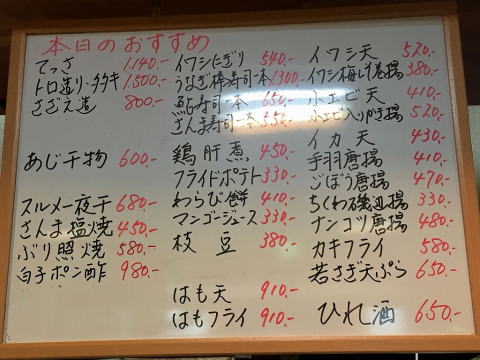 本日のおすすめ
てっさ 1,140.-
トロ造り・タタキ 1,500.-
さざえ造 800.-
あじ干物 600.-
スルメ一夜干 680.-
さんま塩焼 450.-
ぶり照焼 580.-
白子ポン酢 980.-
イワシにぎり 540.-
うなぎ棒寿司一本 1300.-
鮎寿司一本 650.-
さんま寿司一本 550.-
鶏肝煮 450.-
フライドポテト 330.-
わらび餅 410.-
マンゴージュース 330.-
枝豆 380.-
はも天 910.-
はもフライ 910.-
イワシ天 520.-
イワシ梅しそ巻揚 380.-
小エビ天 410.-
小エビ入りかき揚 520.-
イカ天 430.-
手羽唐揚 410.-
ごぼう唐揚 470.-
ちくわ磯辺揚 330.-
ナンコツ唐揚 480.-
カキフライ 580.-
若さぎ天ぷら 650.-
ひれ酒 650.-